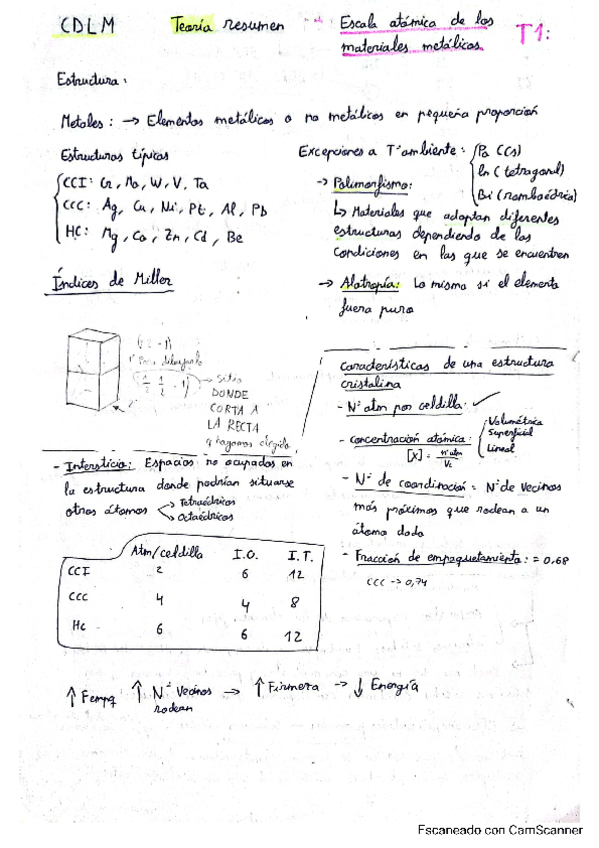 CDLM Teoría resumen → Escala atómica de los materiales metálicos. T1:
Estructura:
Metales: → Elementos metálicos o no metálicos en pequeña proporción
Estructuras típicas
CCI: Cr, Mo, W, V, Ta
CCC: Ag, Cu, Ni, Pt, Al, Pb
HC: Mg, Co, Zn, Cd, Be
Excepciones a Tª ambiente:
Po (Cs)
In (tetragonal)
Bi (romboédrica)
→ Polimorfismo:
↳ Materiales que adoptan diferentes
estructuras dependiendo de las
condiciones en las que se encuentren
→ Alotropía: Lo mismo si el elemento
fuera puro
Índices de Miller
(2 2 -1)
1º Para dibujarlo
(1/2 1/2 -1) → sitio
DONDE
CORTA A
LA RECTA
q hayamos elegido
- Intersticio: Espacios no ocupados en
la estructura donde podrían situarse
otros átomos
Tetraédricos
Octaédricos
Atm/celdilla I.O. I.T.
CCI 2 6 12
CCC 4 4 8
HC 6 6 12
Características de una estructura
cristalina
- Nº atm por celdilla: ✓
- concentración atómica:
Volumétrica
Superficial
Lineal
[X] = nº atm / Vc
- Nº de coordinación = Nº de Vecinos
más próximos que rodean a un
átomo dado
- Fracción de empaquetamiento: = 0,68
CCC → 0,74
↑ Fempq ↑ Nº Vecinos rodean → ↑ Firmeza → ↓ Energía
Escaneado con CamScanner